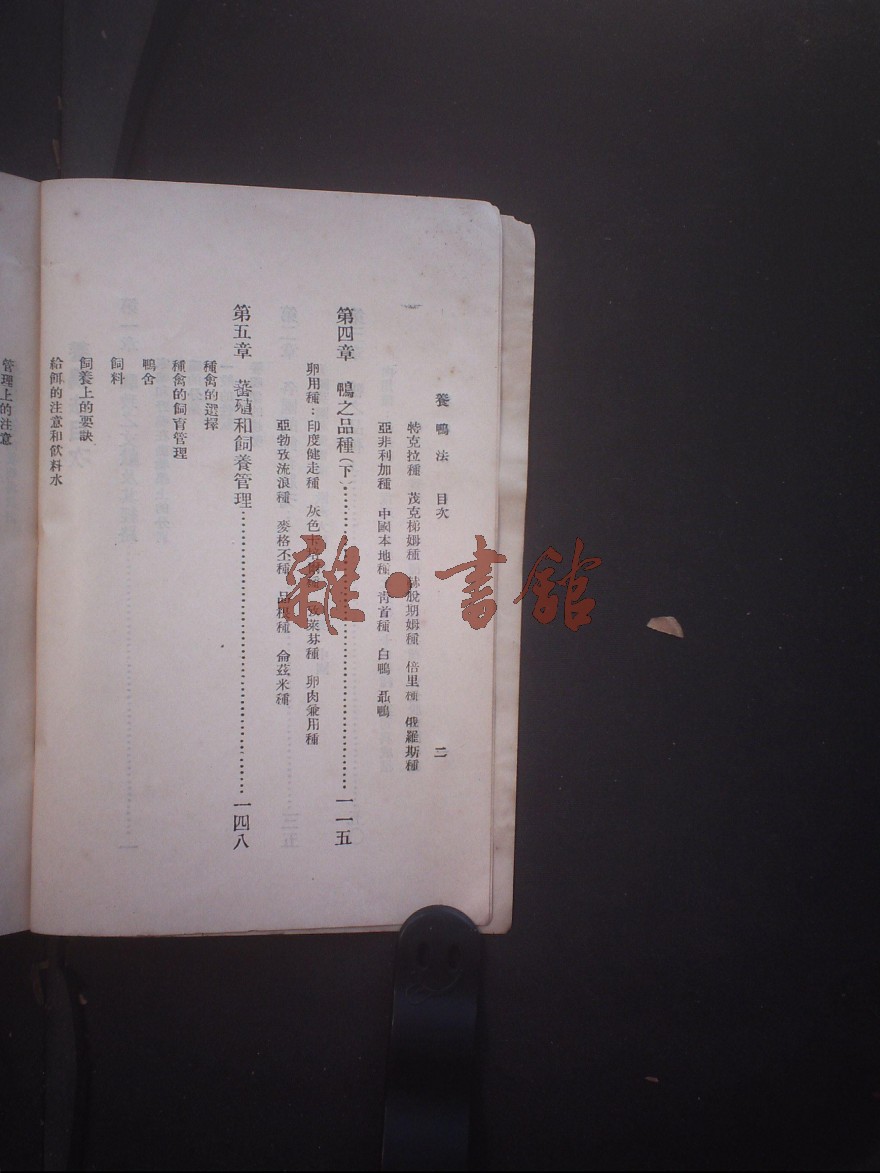 養鴨法 目次 二
特克拉種 茂克梯姆種 赫脫期姆種 倍里種 俄羅斯種
亞非利加種 中國本地種 青首種 白鴨 聶鴨
第四章 鴨之品種(下)……一一五
卵用種:印度健走種 灰色 種 攷萊芬種 卵肉兼用種
亞勃攷流浪種 麥格丕種 品根種 侖茲米種
第五章 蕃殖和飼養管理……一四八
種禽的選擇
種禽的飼育管理
鴨舍
飼料
飼養上的要訣
給餌的注意和飲料水
管理上的注意
雜·書館